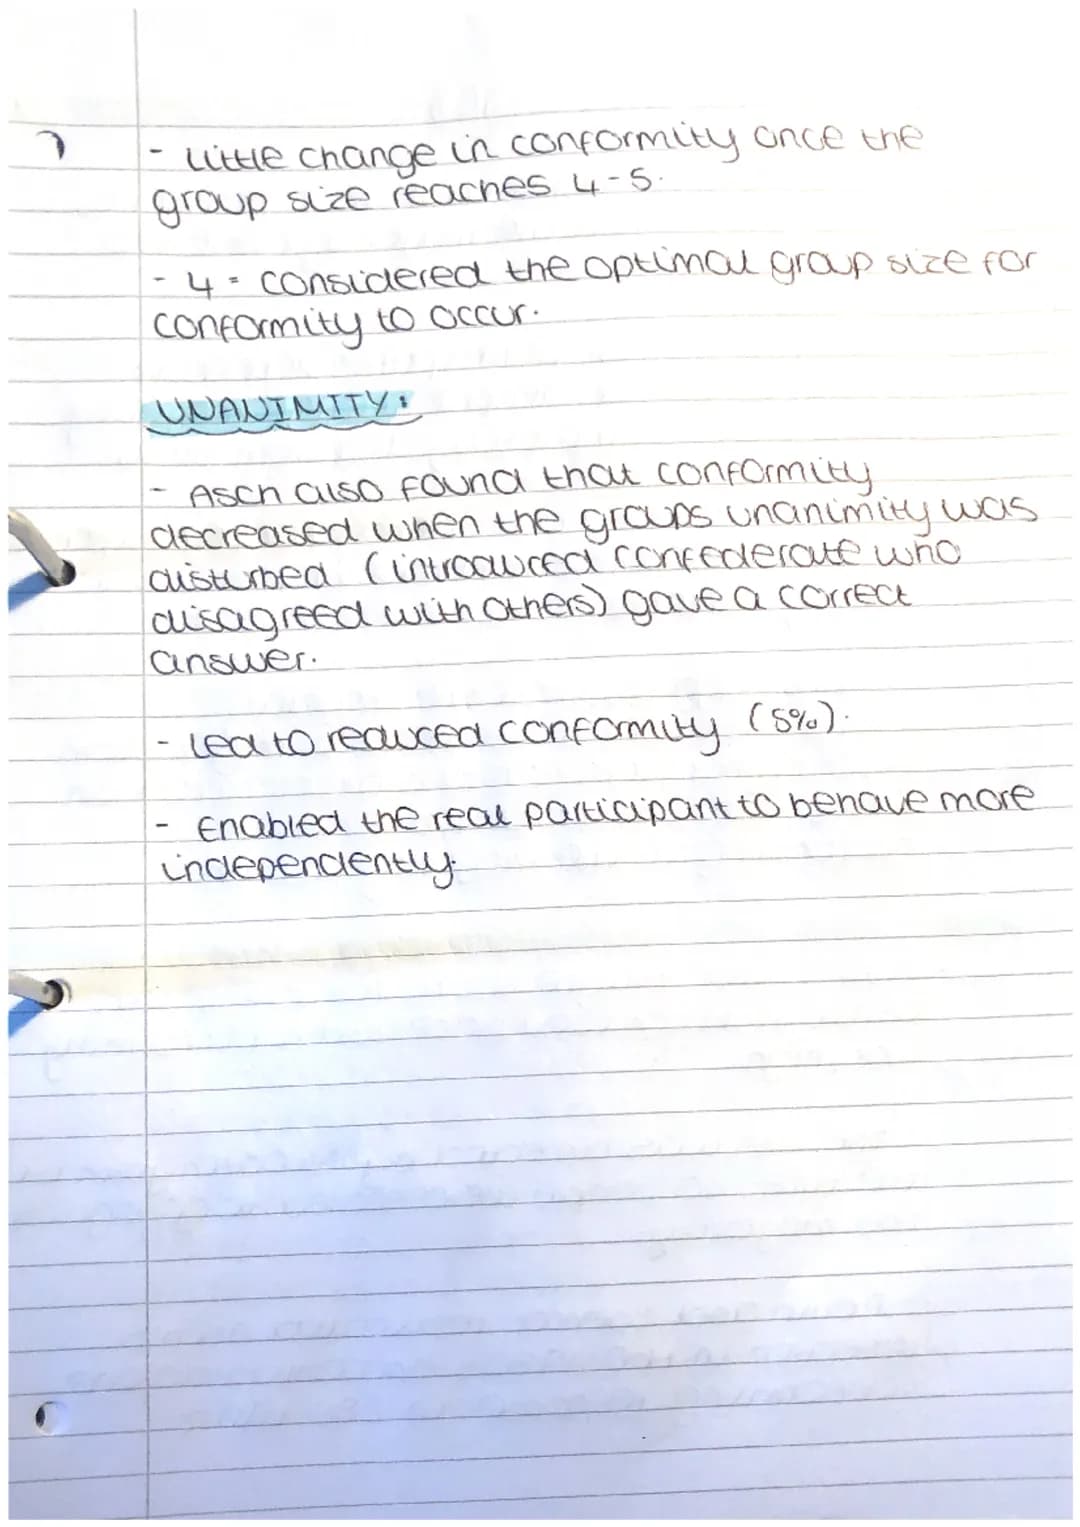 - Little change in conformity once the
group size reaches 4-5.
- 4 = considered the optimal group size for
conformity to occur.
UNANIMITY:
- Asch also found that conformity
decreased when the groups unanimity was
disturbed (introduced confederate who
disagreed with others) gave a correct
answer.
- Led to reduced conformity (5%).
- Enabled the real participant to behave more
independently.